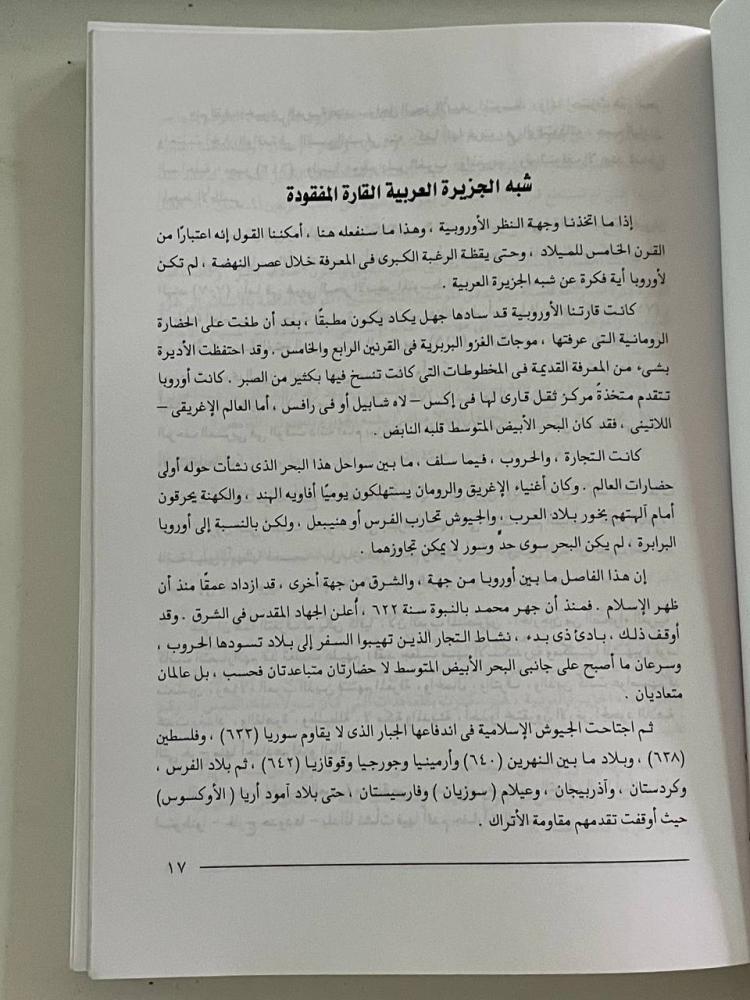 شبه الجزيرة العربية القارة المفقودة
إذا ما اتخذنا وجهة النظر الأوروبية ، وهذا ما سنفعله هنا ، أمكننا القول إنه اعتبارًا من
القرن الخامس للميلاد ، وحتى يقظة الرغبة الكبرى فى المعرفة خلال عصر النهضة ، لم تكن
لأوروبا أية فكرة عن شبه الجزيرة العربية .
كانت قارتنا الأوروبية قد سادها جهل يكاد يكون مطبقًا ، بعد أن طغت على الحضارة
الرومانية التى عرفتها ، موجات الغزو البربرية فى القرنين الرابع والخامس . وقد احتفظت الأديرة
بشىء من المعرفة القديمة فى المخطوطات التى كانت تنسخ فيها بكثير من الصبر . كانت أوروبا
تتقدم متخذةً مركز ثقل قارى لها فى إكس – لاه شابيل أو فى رافس ، أما العالم الإغريقى –
اللاتينى ، فقد كان البحر الأبيض المتوسط قلبه النابض .
كانت التجارة ، والحروب ، فيما سلف ، ما بين سواحل هذا البحر الذى نشأت حوله أولى
حضارات العالم . وكان أغنياء الإغريق والرومان يستهلكون يوميًا أفاويه الهند ، والكهنة يحرقون
أمام آلهتهم بخور بلاد العرب ، والجيوش تحارب الفرس أو هنيبعل ، ولكن بالنسبة إلى أوروبا
البرابرة ، لم يكن البحر سوى حدٍّ وسور لا يمكن تجاوزهما .
إن هذا الفاصل ما بين أوروبا من جهة ، والشرق من جهة أخرى ، قد ازداد عمقًا منذ أن
ظهر الإسلام . فمنذ أن جهر محمد بالنبوة سنة ٦٢٢ ، أُعلن الجهاد المقدس فى الشرق . وقد
أوقف ذلك ، بادئ ذى بدء ، نشاط التجار الذين تهيبوا السفر إلى بلاد تسودها الحروب ،
وسرعان ما أصبح على جانبى البحر الأبيض المتوسط لا حضارتان متباعدتان فحسب ، بل عالمان
متعاديان .
ثم اجتاحت الجيوش الإسلامية فى اندفاعها الجبار الذى لا يقاوم سوريا (٦٣٣) ، وفلسطين
(٦٣٨) ، وبلاد ما بين النهرين (٦٤٠) وأرمينيا وجورجيا وقوقازيا (٦٤٢) ، ثم بلاد الفرس ،
وكردستان ، وآذربيجان ، وعيلام ( سوزيان ) وفارسيستان ، حتى بلاد آمود أريا ( الأوكسوس)
حيث أوقفت تقدمهم مقاومة الأتراك .
١٧